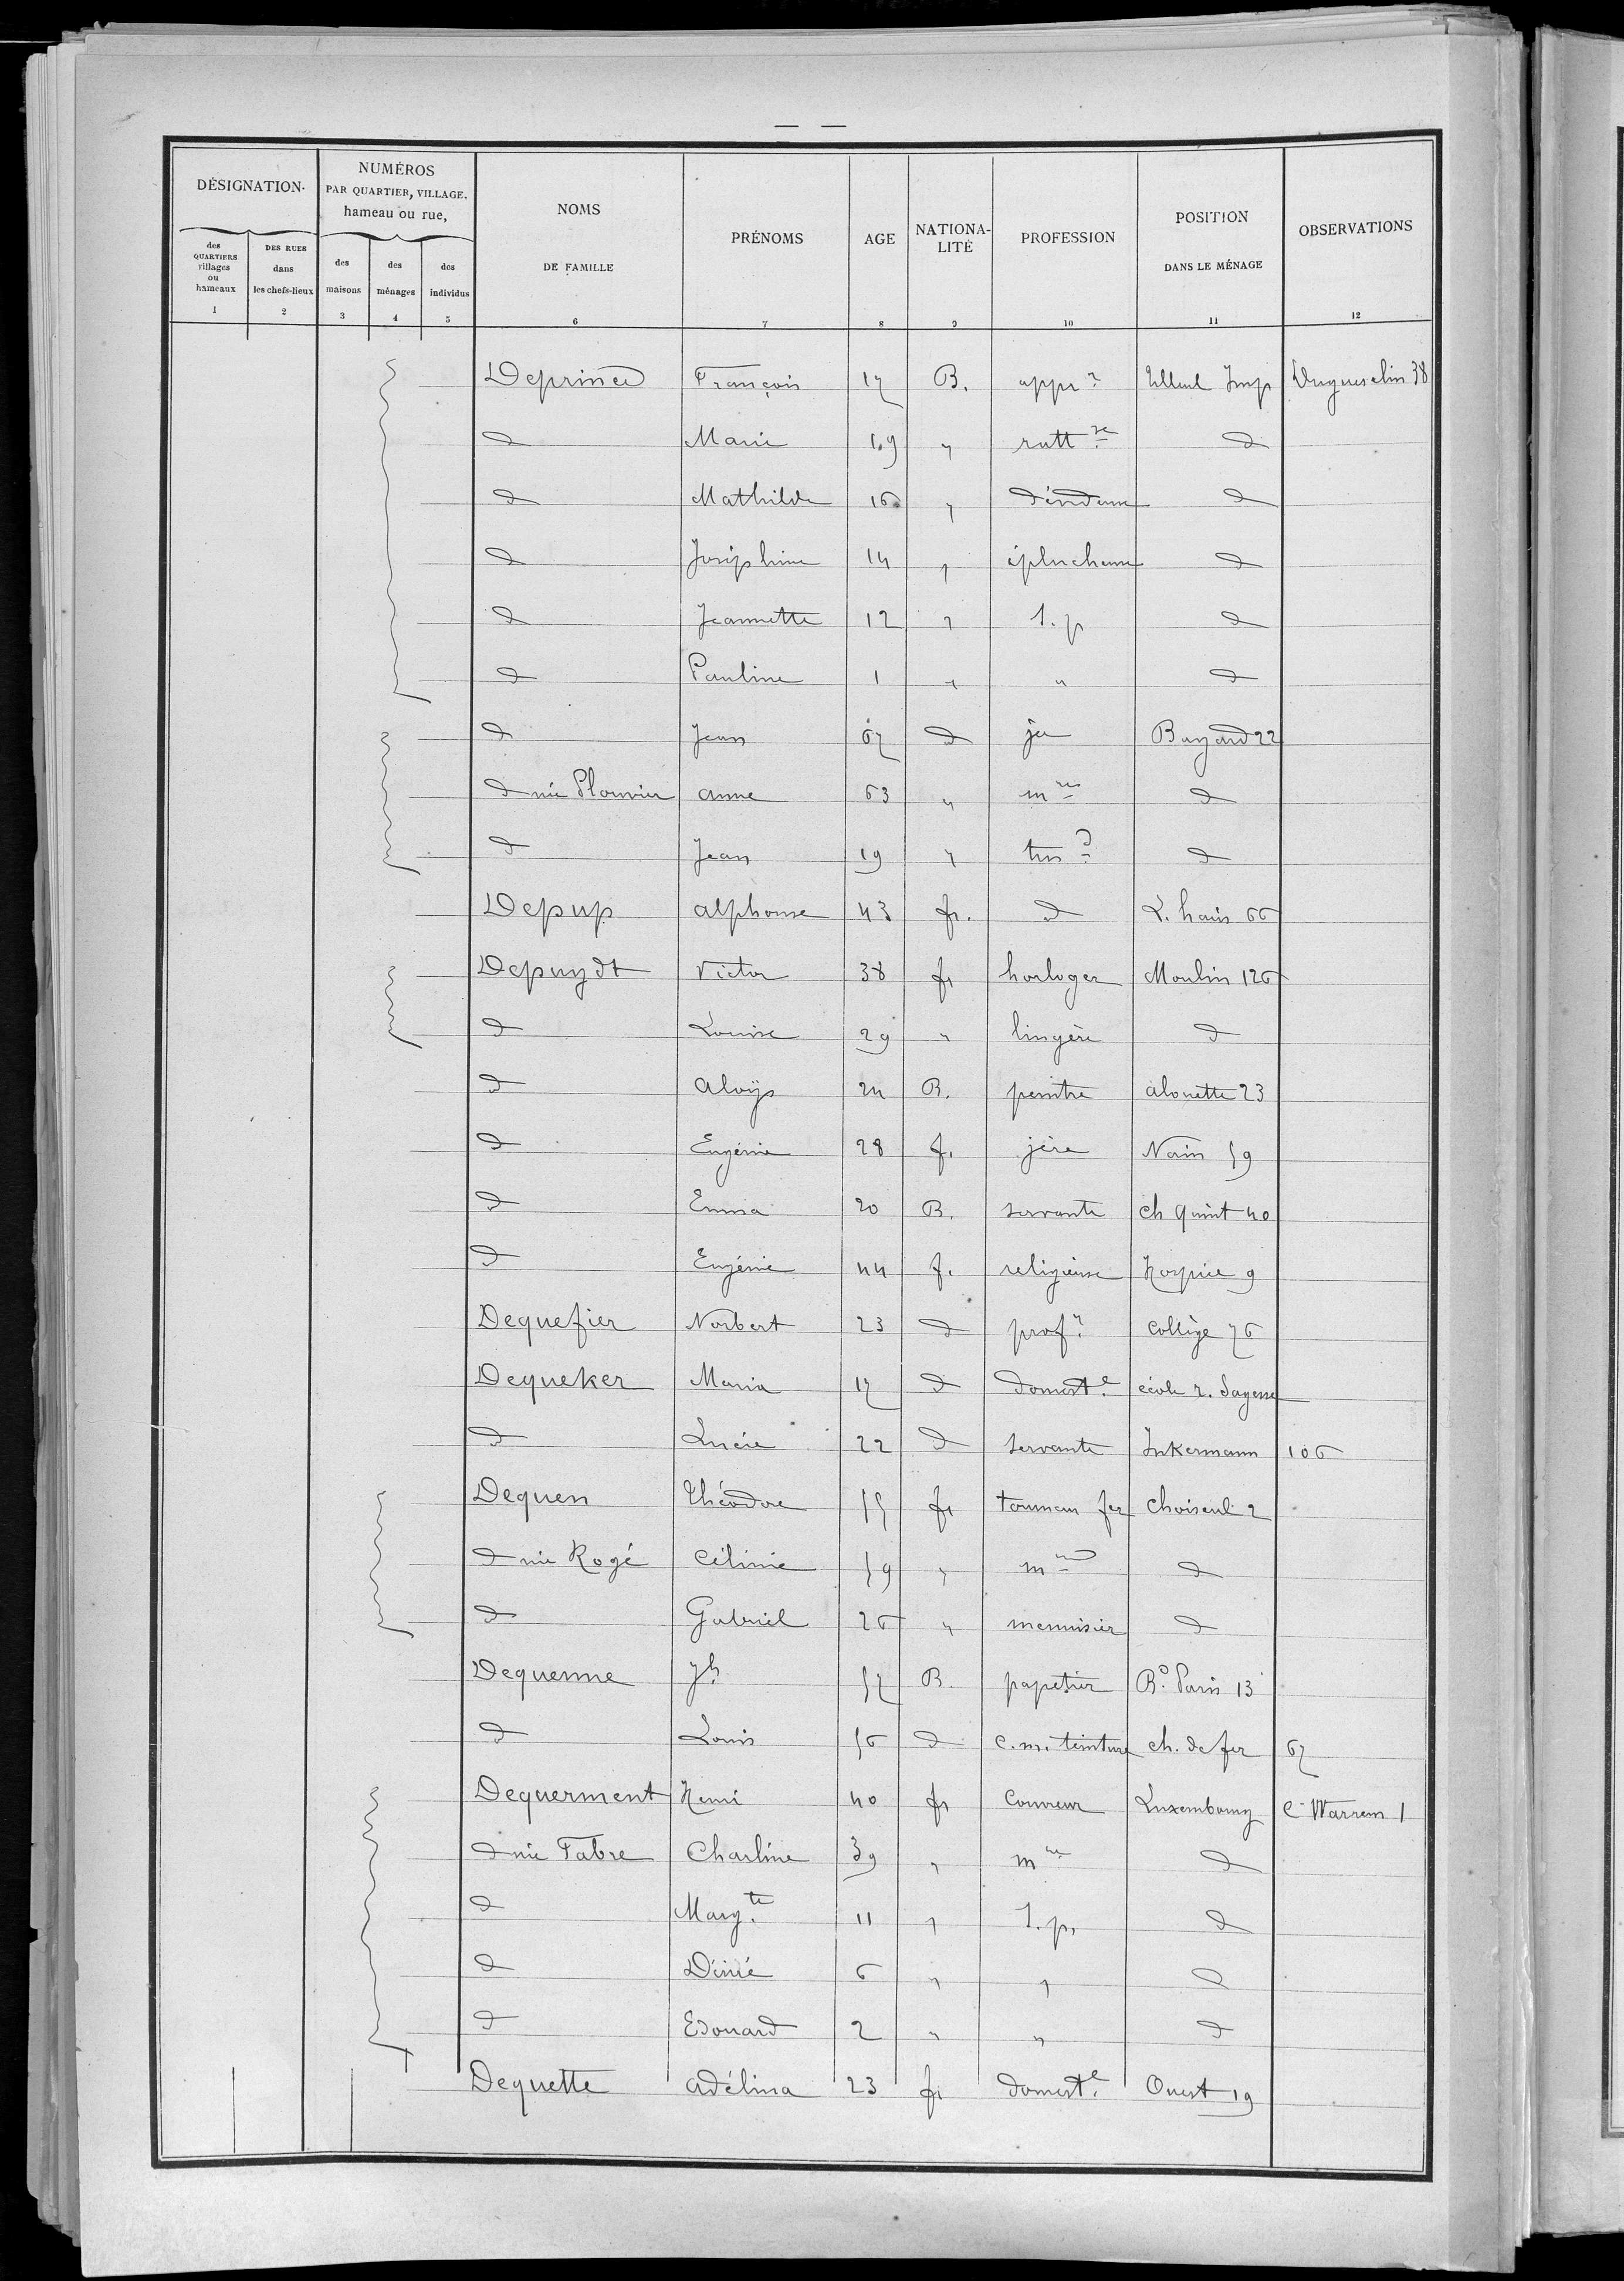 — —
DÉSIGNATION
NUMÉROS
PAR QUARTIER, VILLAGE.
hameau ou rue,
des QUARTIERS villages ou hameaux
DES RUES dans les chefs-lieux
des maisons
des ménages
des individus
NOMS DE FAMILLE
PRÉNOMS
AGE
NATIONA-LITÉ
PROFESSION
POSITION DANS LE MÉNAGE
OBSERVATIONS
1 2 3 4 5 6 7 8 9 10 11 12
Deprince François 17 B. appr Tilleul Imp Duguesclin 38
d Marie 19 " ratt se d
d Mathilde 16 " dévideuse d
d Joséphine 14 " éplucheuse d
d Jeannette 12 " s. p d
d Pauline 1 " " d
d Jean 67 d jer Bayard 22
d née Plouvier Anne 63 " m re d
d Jean 19 " tiss d d
Depup Alphonse 43 fr. d L. haies 66
Depuydt Victor 38 fr horloger Moulin 126
d Louise 29 " lingère d
d Aloÿs 24 B. peintre alouette 23
d Eugénie 28 f. jère Nain 59
d Emma 20 B. servante ch Quint 40
d Eugénie 44 f. religieuse Hospice 9
Dequefier Norbert 23 d prof r collège 76
Dequeker Maria 17 d domest e école r. Sagesse
d Lucie 22 d servante Inkermann 106
Dequen Théodore 55 fr tourneur fer Choiseul 2
d née Rogé Célinie 59 " m d
d Gabriel 26 " menuisier d
Dequenne Jh 57 B. papetier Bd Paris 13
d Louis 56 d c.m. teinture ch. de fer 67
Dequerment Henri 40 fr couvreur Luxembourg c Warrem 1
d née Fabre Charline 39 " m re d
d Marg te 11 " s. p. d
d Désiré 6 " " d
d Edouard 2 " " d
Dequette Adélina 23 fr domest e Ouest 19